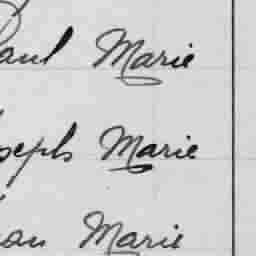 Paul Marie
Joseph Marie
Jean Marie